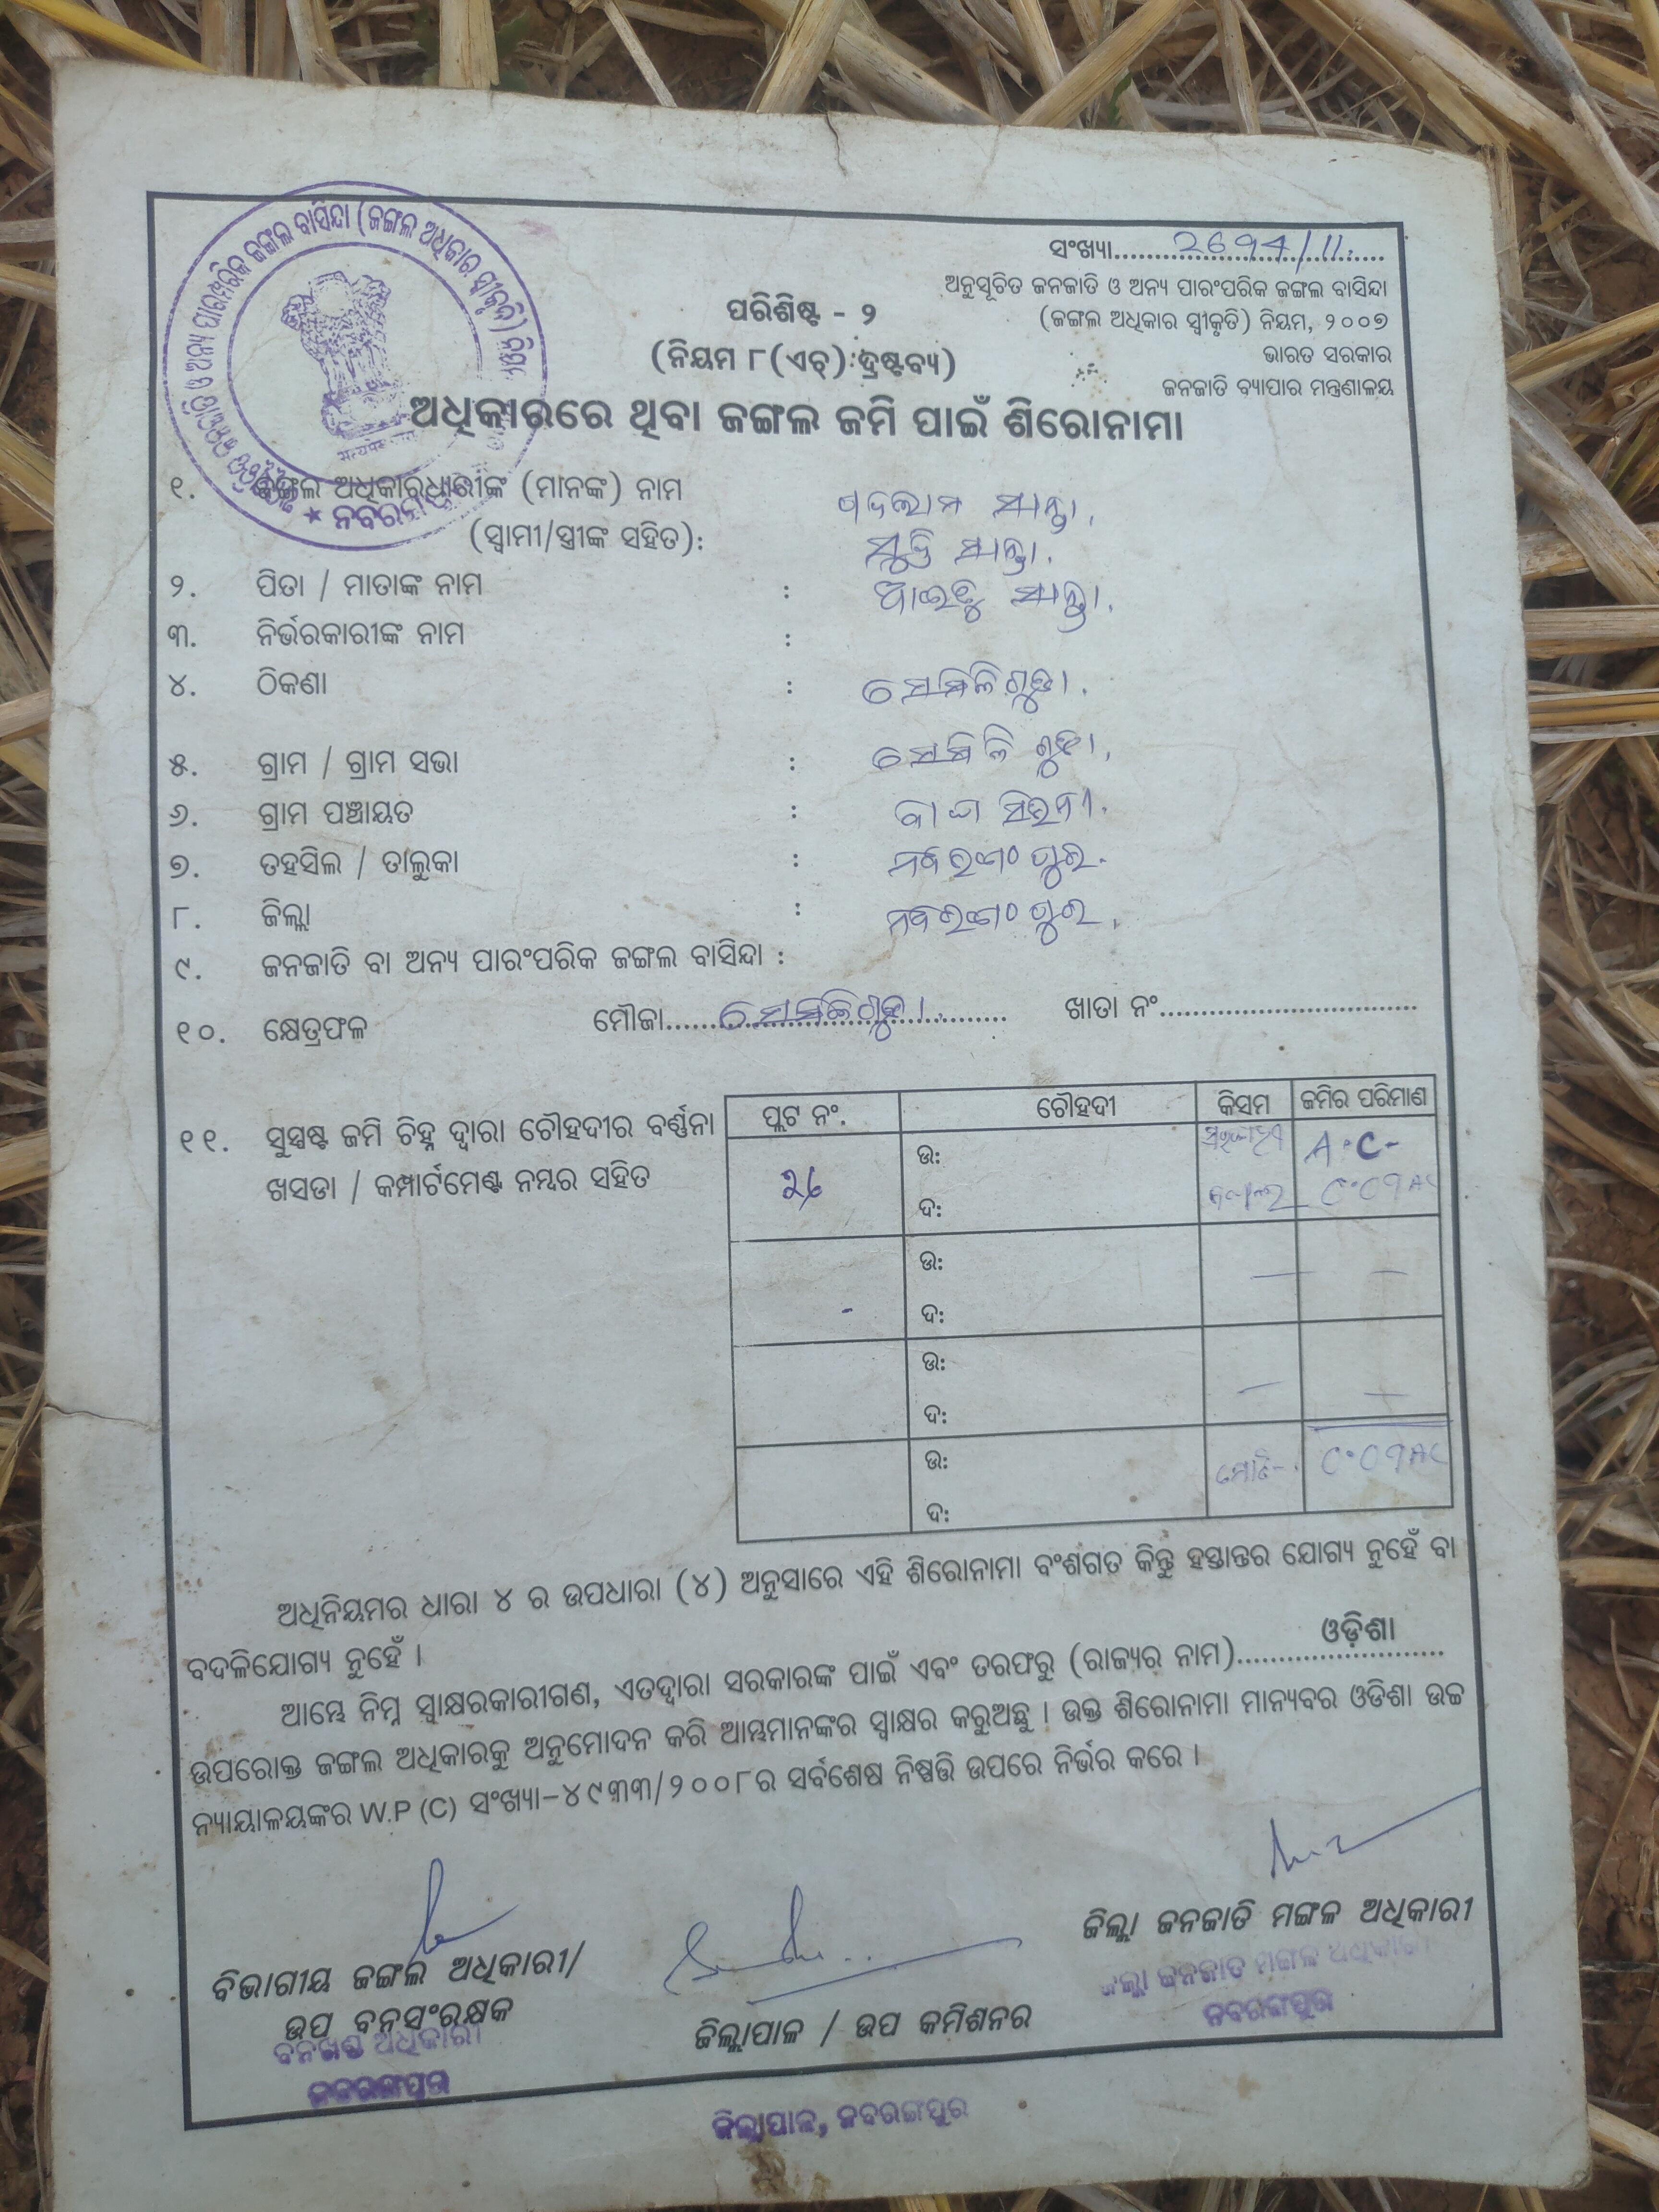 ସଂଖ୍ୟା.......2674/11.......
ଅନୁସୂଚିତ ଜନଜାତି ଓ ଅନ୍ୟ ପାରଂପରିକ ଜଙ୍ଗଲ ବାସିନ୍ଦା
(ଜଙ୍ଗଲ ଅଧିକାର ସ୍ୱୀକୃତି) ନିୟମ, ୨୦୦୭
ଭାରତ ସରକାର
ଜନଜାତି ବ୍ୟାପାର ମନ୍ତ୍ରଣାଳୟ
ପରିଶିଷ୍ଟ - ୨
(ନିୟମ ୮(ଏଚ୍) ଦ୍ରଷ୍ଟବ୍ୟ)
ଅଧିକାରରେ ଥିବା ଜଙ୍ଗଲ ଜମି ପାଇଁ ଶିରୋନାମା
୧. ଜଙ୍ଗଲ ଅଧିକାରଧାରୀଙ୍କ (ମାନଙ୍କ) ନାମ
(ସ୍ୱାମୀ/ସ୍ତ୍ରୀଙ୍କ ସହିତ):
୨. ପିତା / ମାତାଙ୍କ ନାମ :
୩. ନିର୍ଭରକାରୀଙ୍କ ନାମ :
୪. ଠିକଣା : ସେମିଳିଗୁଡା.
୫. ଗ୍ରାମ / ଗ୍ରାମ ସଭା : ସେମିଳି ଗୁଡା.
୬. ଗ୍ରାମ ପଞ୍ଚାୟତ :
୭. ତହସିଲ / ତାଲୁକା : ନବରଙ୍ଗପୁର.
୮. ଜିଲ୍ଲା : ନବରଙ୍ଗପୁର.
୯. ଜନଜାତି ବା ଅନ୍ୟ ପାରଂପରିକ ଜଙ୍ଗଲ ବାସିନ୍ଦା :
୧୦. କ୍ଷେତ୍ରଫଳ ମୌଜା.......ସେମିଳିଗୁଡା....... ଖାତା ନଂ..............................
୧୧. ସୁସ୍ପଷ୍ଟ ଜମି ଚିହ୍ନ ଦ୍ୱାରା ଚୌହଦୀର ବର୍ଣ୍ଣନା
ଖସଡା / କମ୍ପାର୍ଟମେଣ୍ଟ ନମ୍ବର ସହିତ
ପ୍ଲଟ ନଂ. ଚୌହଦୀ କିସମ ଜମିର ପରିମାଣ
ଉ: A.C-
୨୬ ଦ: ଜଙ୍ଗଲ ୦.୦୭AC
ଉ: — —
- ଦ:
ଉ:
ଦ: — —
ଉ: ମୋଟ- ୦.୦୭AC
ଦ:
ଅଧିନିୟମର ଧାରା ୪ ର ଉପଧାରା (୪) ଅନୁସାରେ ଏହି ଶିରୋନାମା ବଂଶଗତ କିନ୍ତୁ ହସ୍ତାନ୍ତର ଯୋଗ୍ୟ ନୁହେଁ ବା
ବଦଳିଯୋଗ୍ୟ ନୁହେଁ ।
ଆମ୍ଭେ ନିମ୍ନ ସ୍ୱାକ୍ଷରକାରୀଗଣ, ଏତଦ୍ୱାରା ସରକାରଙ୍କ ପାଇଁ ଏବଂ ତରଫରୁ (ରାଜ୍ୟର ନାମ).......ଓଡ଼ିଶା.......
ଉପରୋକ୍ତ ଜଙ୍ଗଲ ଅଧିକାରକୁ ଅନୁମୋଦନ କରି ଆମ୍ଭମାନଙ୍କର ସ୍ୱାକ୍ଷର କରୁଅଛୁ । ଉକ୍ତ ଶିରୋନାମା ମାନ୍ୟବର ଓଡିଶା ଉଚ୍ଚ
ନ୍ୟାୟାଳୟଙ୍କର W.P (C) ସଂଖ୍ୟା-୪୯୩୩/୨୦୦୮ର ସର୍ବଶେଷ ନିଷ୍ପତ୍ତି ଉପରେ ନିର୍ଭର କରେ ।
ବିଭାଗୀୟ ଜଙ୍ଗଲ ଅଧିକାରୀ/
ଉପ ବନସଂରକ୍ଷକ
ବନଖଣ୍ଡ ଅଧିକାରୀ
ନବରଙ୍ଗପୁର
ଜିଲ୍ଲାପାଳ / ଉପ କମିଶନର
ଜିଲ୍ଲାପାଳ, ନବରଙ୍ଗପୁର
ଜିଲ୍ଲା ଜନଜାତି ମଙ୍ଗଳ ଅଧିକାରୀ
ଜିଲ୍ଲା ଜନଜାତି ମଙ୍ଗଳ ଅଧିକାରୀ
ନବରଙ୍ଗପୁର